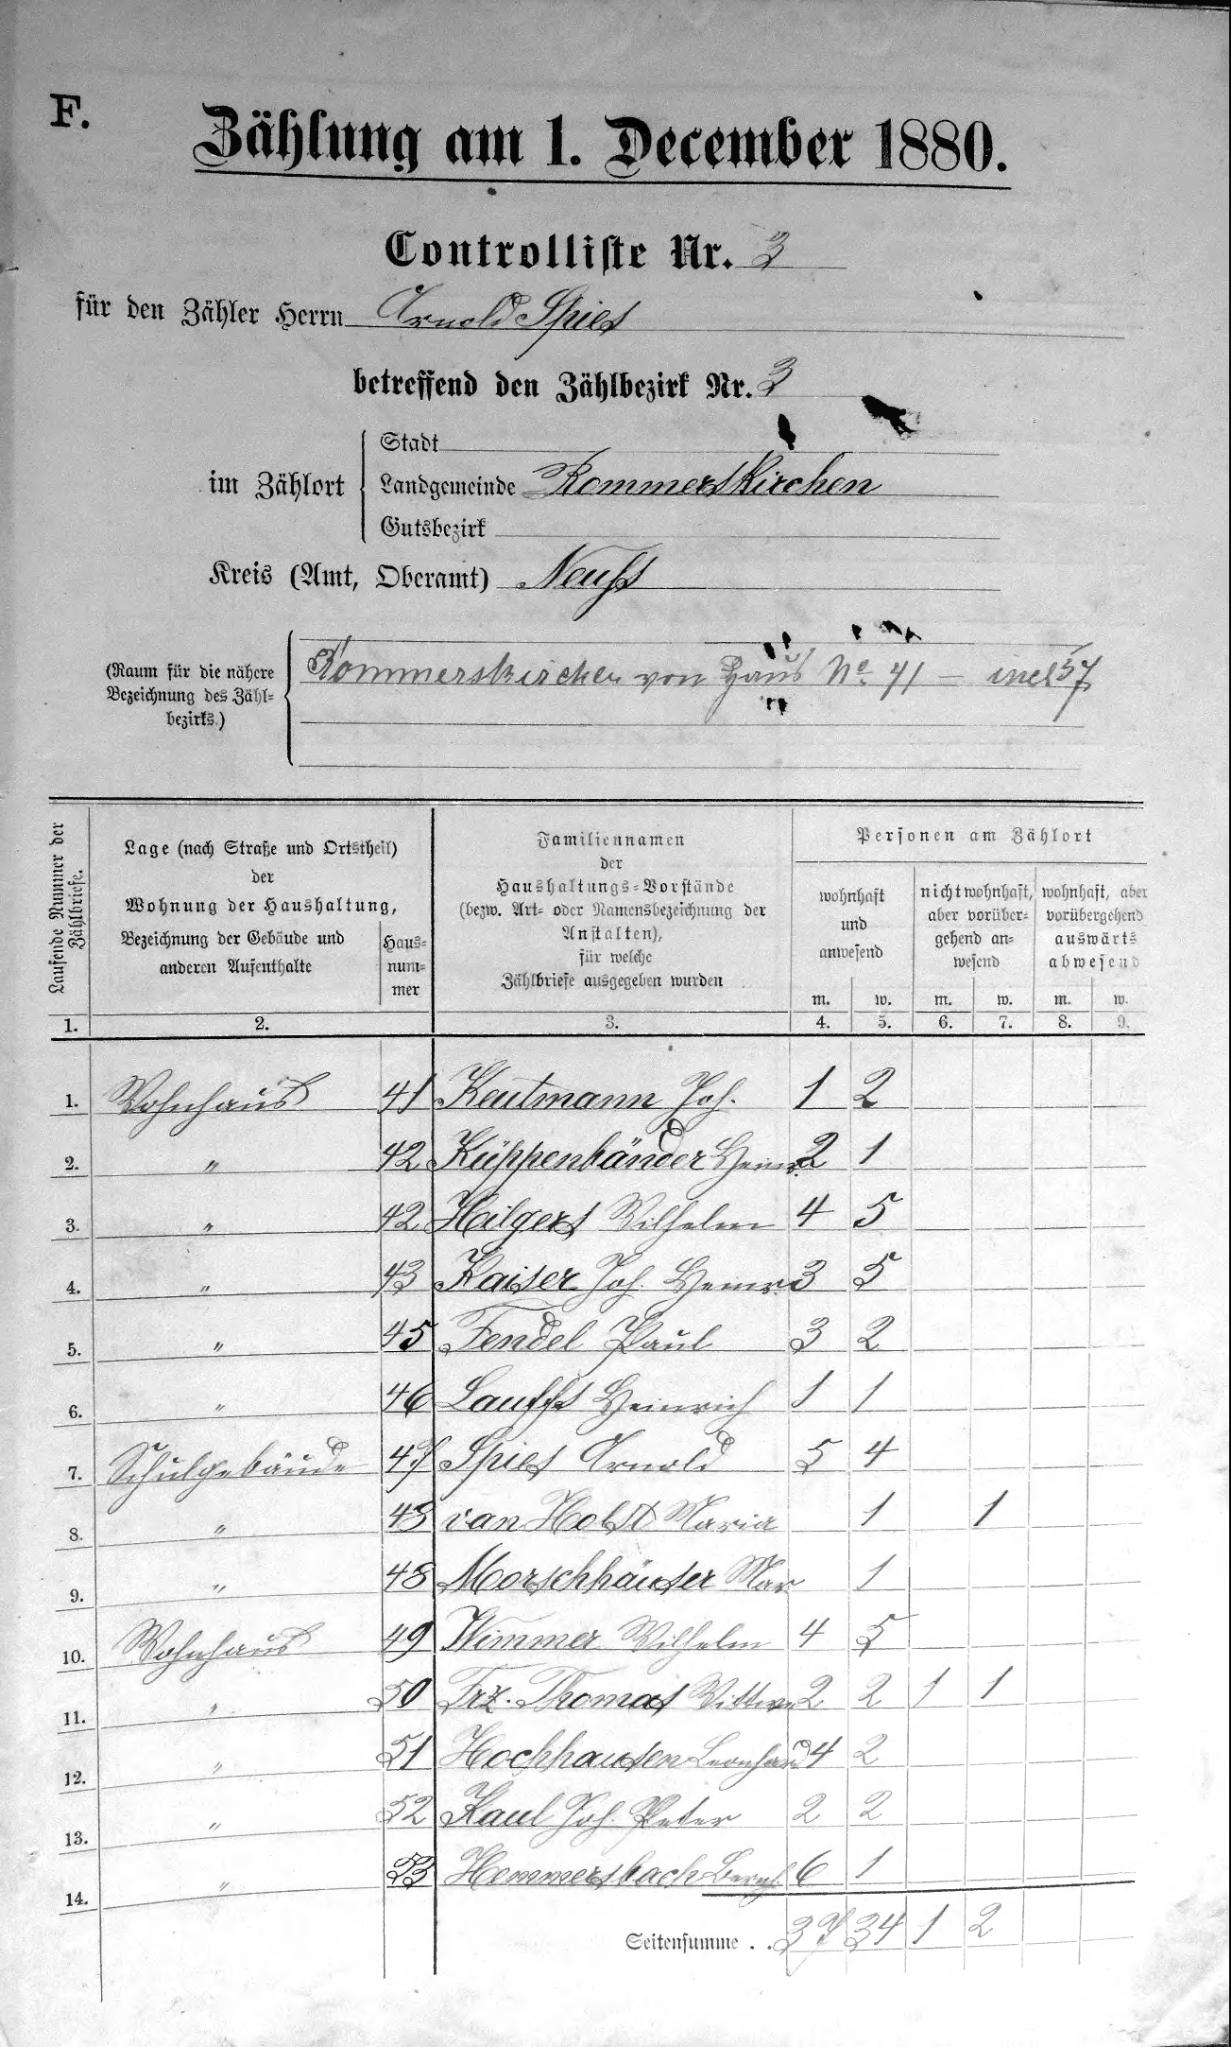 F.
Zählung am 1. December 1880.
Controlliste Nr. 3
für den Zähler Herrn Arnold Spies
betreffend den Zählbezirk Nr. 3
Stadt
im Zählort
Landgemeinde Rommerskirchen
Gutsbezirk
Kreis (Amt, Oberamt) Neuß
(Raum für die nähere
Bezeichnung des Zähl-
bezirks.)
Rommerskirchen von Haus No 41 – incl 57
Laufende Nummer der
Zählbriefe.
Lage (nach Straße und Ortstheil)
der
Wohnung der Haushaltung,
Bezeichnung der Gebäude und
anderen Aufenthalte
Haus-
num-
mer
Familiennamen
der
Haushaltungs-Vorstände
(bezw. Art- oder Namensbezeichnung der
Anstalten),
für welche
Zählbriefe ausgegeben wurden
Personen am Zählort
wohnhaft
und
anwesend
nichtwohnhaft,
aber vorüber-
gehend an-
wesend
wohnhaft, aber
vorübergehend
auswärts
abwesend
m. w. m. w. m. w.
1. 2. 3. 4. 5. 6. 7. 8. 9.
1. Wohnhaus 41 Keutmann Joh. 1 2
2. " 42 Küppenbänder Heinr. 2 1
3. " 42 Hilgers Wilhelm 4 5
4. " 43 Kaiser Joh. Heinr. 3 5
5. " 45 Fendel Paul 3 2
6. " 46 Lauffs Heinrich 1 1
7. Schulgebäude 47 Spies Arnold 5 4
8. " 48 van Holst Maria 1 1
9. " 48 Morschhäuser Mar 1
10. Wohnhaus 49 Wimmer Wilhelm 4 5
11. " 50 Frz. Thomas Wittwe 2 2 1 1
12. " 51 Hochhausen Leonhard 4 2
13. " 52 Kaul Joh. Peter 2 2
14. " 53 Hemmersbach 6 1
Seitensumme . . 37 34 1 2